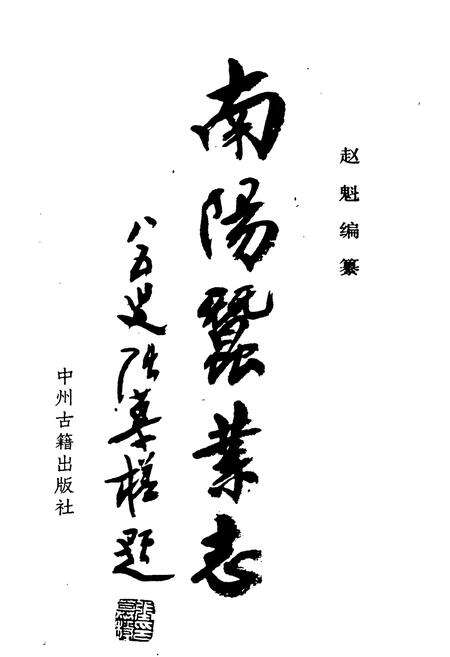 赵魁编纂
南陽蠶業志
八五叟张慕槎题
中州古籍出版社